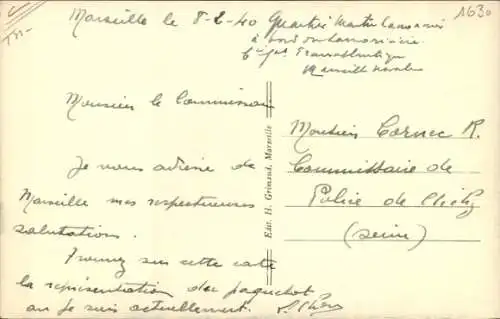 Marseille le 8-2-40
1630
à bord du
Cie Gle Transatlantique
Marseille
Monsieur le Commissaire
Je vous adresse de
Marseille mes respectueuses
salutations.
Trouvez sur cette carte
la représentation du paquebot
où je suis actuellement.
Edit. H. Grimaud, Marseille
Monsieur Cornec R.
Commissaire de
Police de Clichy
(Seine)